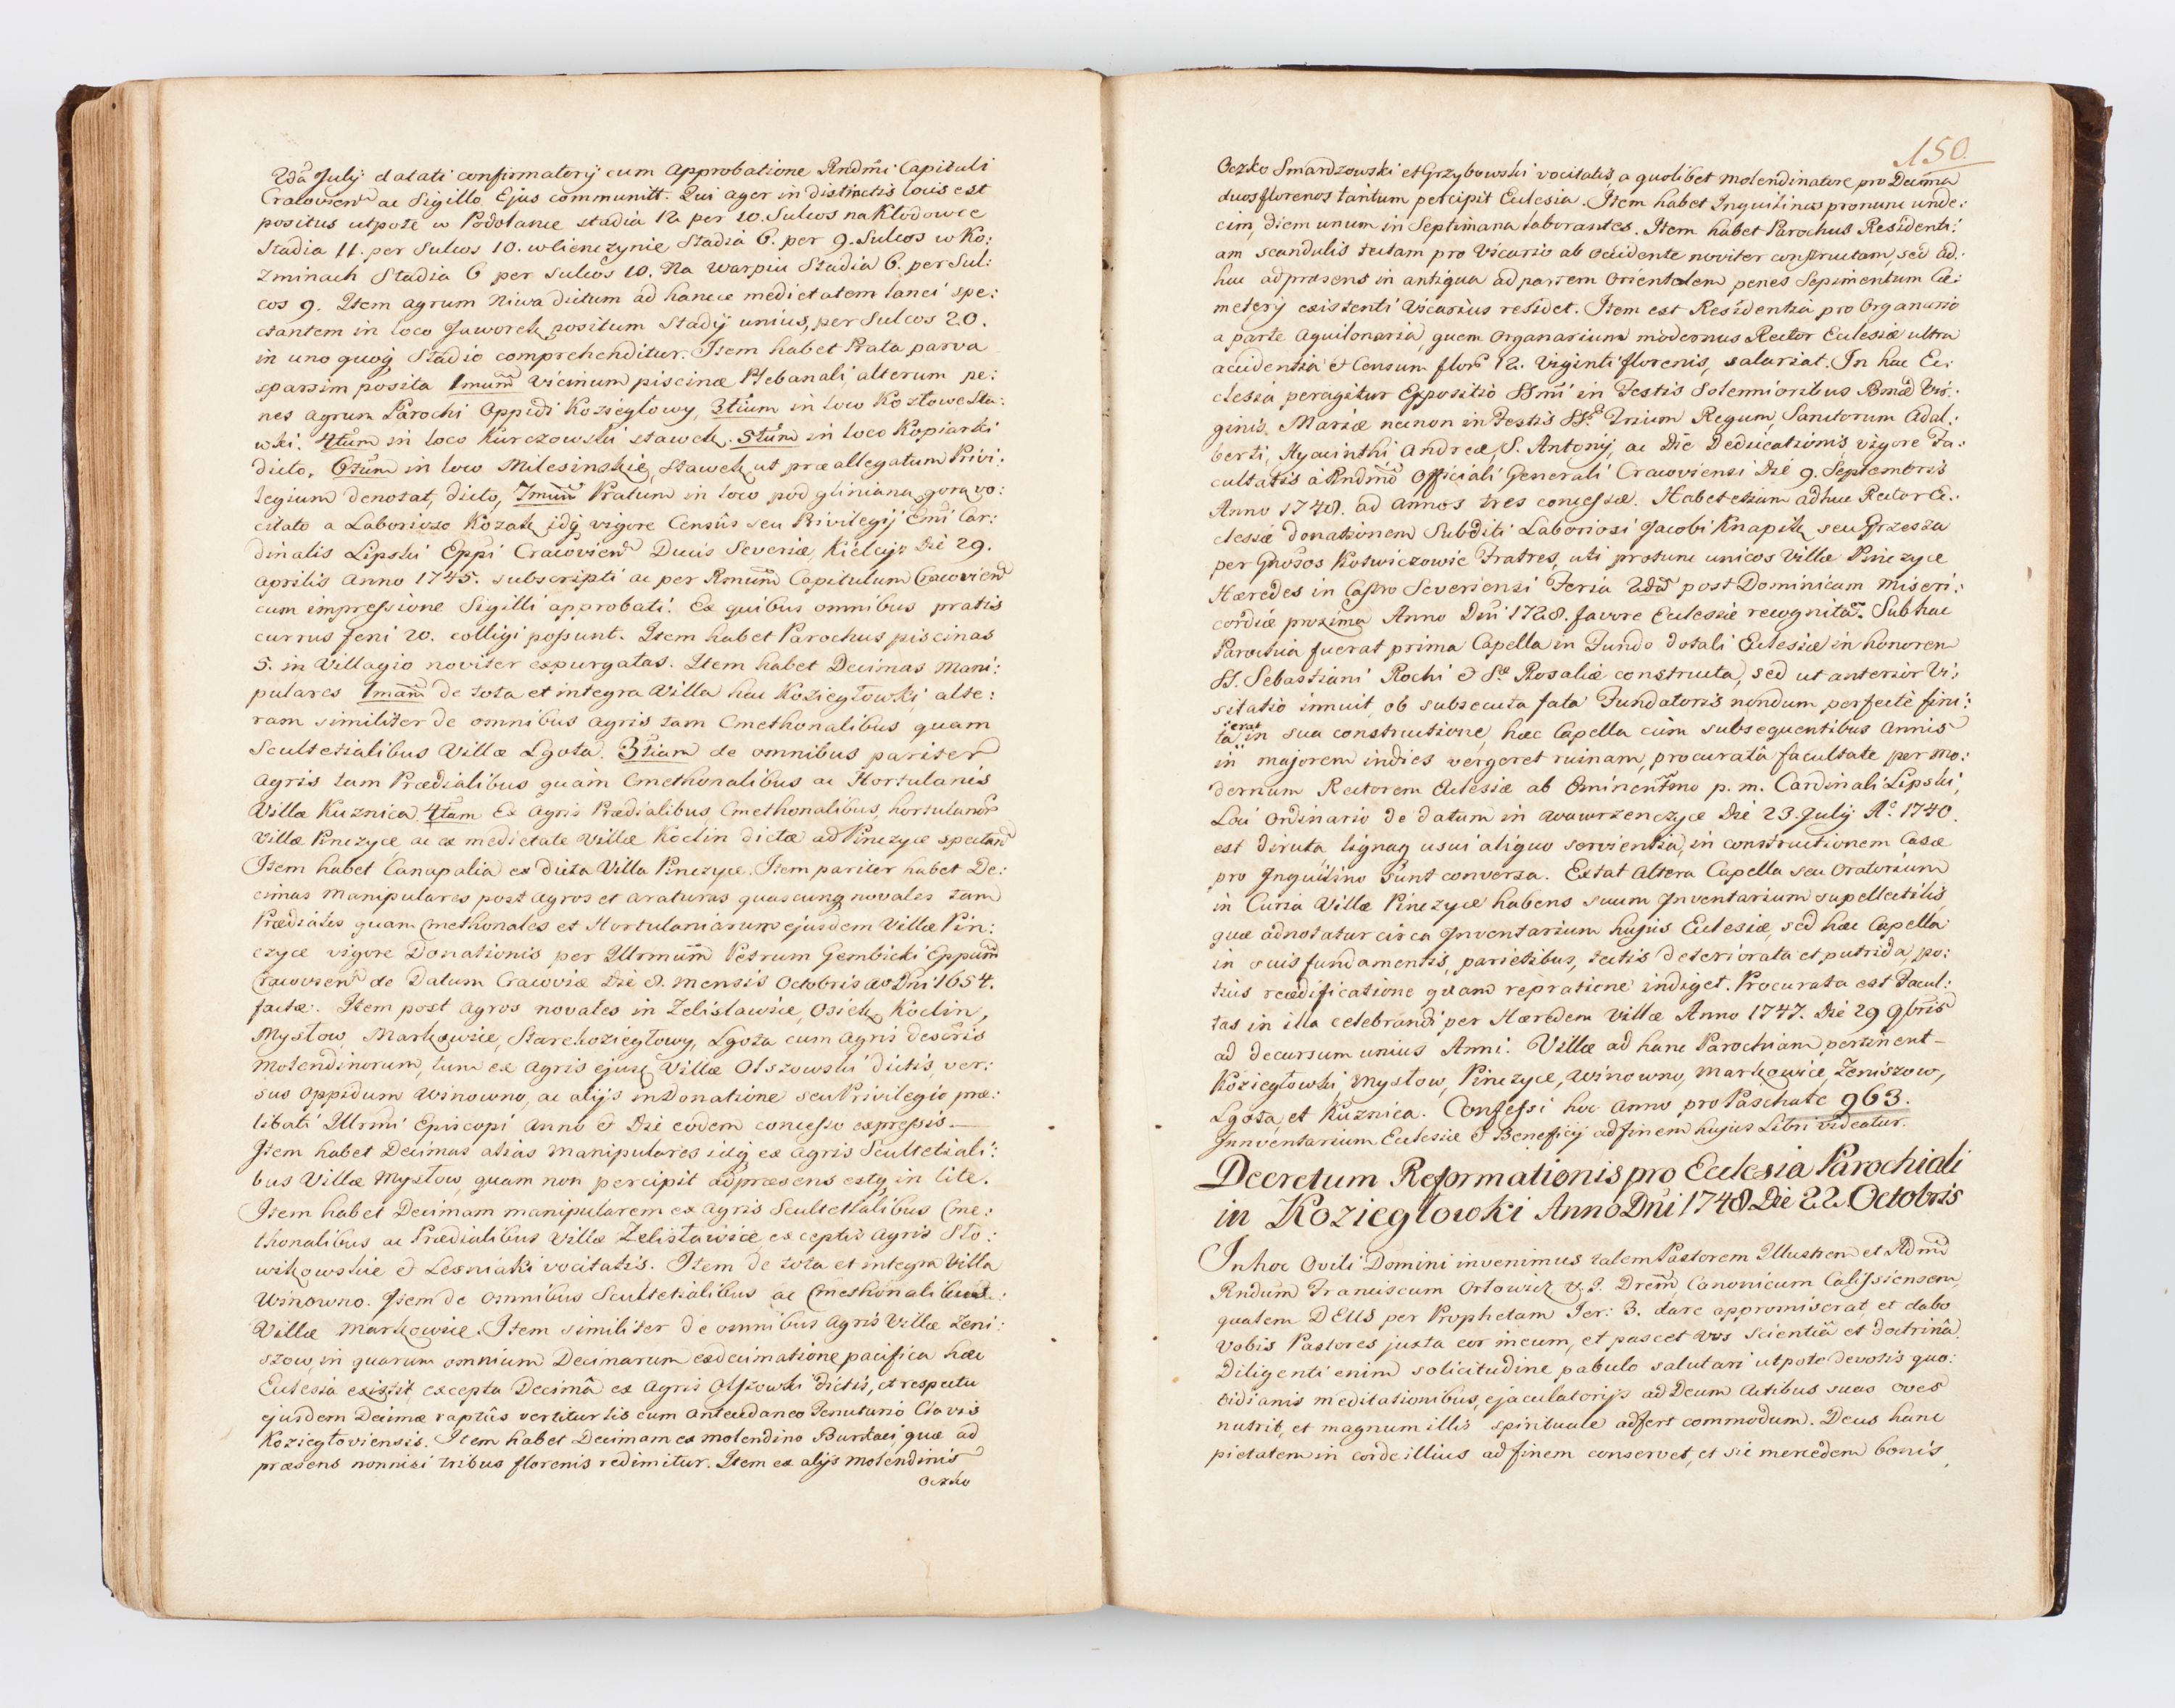 2da July datati confirmatorÿ cum Approbatione Rndmi Capituli
Cracovien ac Sigillo Ejus communitt. Qui ager in distinctis locis est
positus utpote w Podolance stadia 12 per 10. Sulcos na Kłodowce
Stadia 11. per Sulcos 10. w Stadia 6. per 9. Sulcos w Ko:
zminach Stadia 6 per sulcos 10. Na Warpiu Stadia 6. per Sul:
cos 9. Item agrum Niwa dictum ad hancce medietatem lanei spe:
ctantem in loco Jaworek positum Stadÿ unius, per Sulcos 20.
in uno quoq Stadio comprehenditur. Item habet Prata parva
sparsim posita 1mum vicinum piscinæ Plebanali alterum pe:
nes agrum Parochi Oppidi Koziegłowy, 3tium in loco Kozłowe Sta:
wki. 4tum in loco Kurczowski stawek. 5tum in loco Kopiarki
dicto, 6tum in loco Milesinskie Stawek ut præallegatum Privi:
legium denotat, dicto, 7mum Pratum in loco pod gliniana gora vo:
citato a Laborioso Kozak idq vigore Censûs seu Privilegij Emi Car:
dinalis Lipski Eppi Cracovien Ducis Severiæ, Kielcijs Die 29.
Aprilis Anno 1745. subscripti ac per Rmum Capitulum Cracovien
cum impressione Sigilli approbati. Ex quibus omnibus pratis
currus feni 20. colligi possunt. Item habet Parochus piscinas
5. in Villagio noviter expurgatas. Item habet Decimas Mani:
pulares 1mam de tota et integra Villa hac Koziegłowki, alte:
ram similiter de omnibus agris tam Cmethonalibus quam
Scultetialibus Villæ Lgota. 3tiam de omnibus pariter
Agris tam Prædialibus quàm Cmethonalibus ac Hortulanis
Villæ Kuznica. 4tam Ex Agris Prædialibus, Cmethonalibus, hortulanor
Villæ Pinczyce, ac ex medietate villæ Koclin dictæ ad Pinczyce spectan
Item habet Canapalia ex dicta Villa Pinczyce. Item pariter habet De:
cimas Manipulares post agros et araturas quascunq novales tam
Prædiales quam Cmethonales et Hortulaniarum ejusdem Villæ Pin:
czyce vigore Donationis per Illrmum Petrum Gembicki Eppum
Cracovien de Datum Cracoviæ Die 8. mensis Octobris Ao Dni 1654.
factæ. Item post agros novales in Zelisławice, Osiek, Koclin,
Mysłow, Markowice, Starekoziegłowy, Lgota cum agris desertis
Molendinorum, tum ex agris ejusq Villæ Olszowski dictis, ver:
sus oppidum Winowno, ac alijs in Donatione seu Privilegio præ:
libati Illrmi Episcopi Anno & Die eodem concesso expressis.—
Item habet Decimas alias Manipulares idq ex agris Scultetiali:
bus Villæ Mysłow, quam non percipit ad præsens estq in lite.
Item habet Decimam manipularem ex agris Scultetialibus Cme:
thonalibus ac Prædialibus villæ Zelisławice exceptis agris Sło:
wikowskie & Lesniaki vocitatis. Item de tota et integra Villa
Winowno. Item de omnibus Scultetialibus ac Cmethonalibus
Villæ Markowice. Item similiter de omnibus agris Villæ Zeni:
szow, in quarum omnium Decimarum exdecimatione pacifica hæc
Eclesia existit, excepta Decimâ ex agris Olszowki dictis, et respectu
ejusdem Decimæ raptûs vertitur lis cum antecedaneo Tenutario Clavis
Koziegłoviensis. Item habet Decimam ex molendino quæ ad
præsens nonnisi tribus florenis redimitur. Item ex alijs molendinis
Oczko
150.
Oczko Smardzowski et Grzybowski vocitatis, a quolibet Molendinatore pro Decima
duos florenos tantum percipit Eclesia. Item habet Inquilinos pronunc unde:
cim, diem unum in Septimana laborantes. Item habet Parochus Residenti:
am scandulis tectam pro Vicario ab occidente noviter constructam, sed ad:
huc ad præsens in antiqua ad partem Orientalem penes Sepimentum Cæ:
meterÿ existenti Vicarius residet. Item est Residentia pro Organario
a parte Aquilonaria, quem Organarium modernus Rector Eclesiæ ultra
accidentia & Censum flor 12. Viginti florenis, salariat. In hac Ec:
clesia peragitur Expositio SSmi in Festis Solemnioribus Bmæ Vir:
ginis Mariæ necnon in Festis SS. Trium Regum, Sanctorum Adal:
berti, Hyacinthi Andreæ, S. Antonÿ, ac Die Dedicationis, vigore Fa:
cultatis à Rndmo Officiali Generali Cracoviensi Die 9. Septembris
Anno 1748. ad annos tres concessæ. Habet etiam adhuc Rector Ec:
clesiæ donationem Subditi Laboriosi Jacobi Knapik seu Grzesza
per Gnosos Kotwiczowie Fratres, uti protunc unicos Villæ Pinczyce
Hæredes in Castro Severiensi Feria 2da post Dominicam Miseri:
cordiæ proxima Anno Dni 1728. favore Eclesiæ recognitam. Sub hac
Parochia fuerat prima Capella in Fundo dotali Eclesiæ in honorem
SS. Sebastiani Rochi & Stæ Rosaliæ constructa, sed ut anterior Vi:
sitatio innuit, ob subsecuta fata Fundatoris nondum perfectè fini:
ta erat in sua constructione, hæc Capella cùm subsequentibus annis
in majorem indies vergeret ruinam, procurata facultate per mo:
dernum Rectorem Eclesiæ ab Eminentmo p. m. Cardinali Lipski,
Loci Ordinario de datum in Wawrzenczyce Die 23. July A° 1740.
est diruta lignaq usui aliquo servientia, in constructionem Casæ
pro Inquilino sunt conversa. Extat altera Capella seu Oratorium
in Curia Villæ Pinczyce habens suum Inventarium supellectilis,
quæ adnotatur circa Inventarium hujus Eclesiæ, sed hæc Capella
in suis fundamentis, parietibus, tectis deteriorata et putrida, po:
tius reædificatione quam repratione indiget. Procurata est Facul:
tas in illa celebrandi per Hæredem Villæ Anno 1747. Die 29 9bris
ad decursum unius Anni. Villæ ad hanc Parochiam pertinent–
Koziegłowki, Mysłow, Pinczyce, Winowno, Markowice, Zeniszow,
Lgota, et Kuznica. Confessi hoc anno pro Paschate 963.
Innventarium Eclesiæ & Beneficÿ ad finem hujus Libri videatur.
Decretum Reformationis pro Ecclesia Parochiali
in Koziegłowki Anno Dni 1748 Die 22 Octobris
In hoc Ovili Domini invenimus talem Pastorem Illustrem et Adm
Rndum Franciscum Orłowicz Drem, Canonicum Calissiensem,
qualem DEUS per Prophetam Jer: 3. dare appromiserat, et dabo
vobis Pastores juxta cor meum, et pascet vos scientiâ et doctrinâ.
Diligenti enim solicitudine, pabulo salutari utpote devotis quo:
tidianis meditationibus, ejaculatorijs ad Deum actibus suas oves
nutrit, et magnum illis spirituale adfert commodum. Deus hanc
pietatem in corde illius ad finem conservet, et sic mercedem bonis